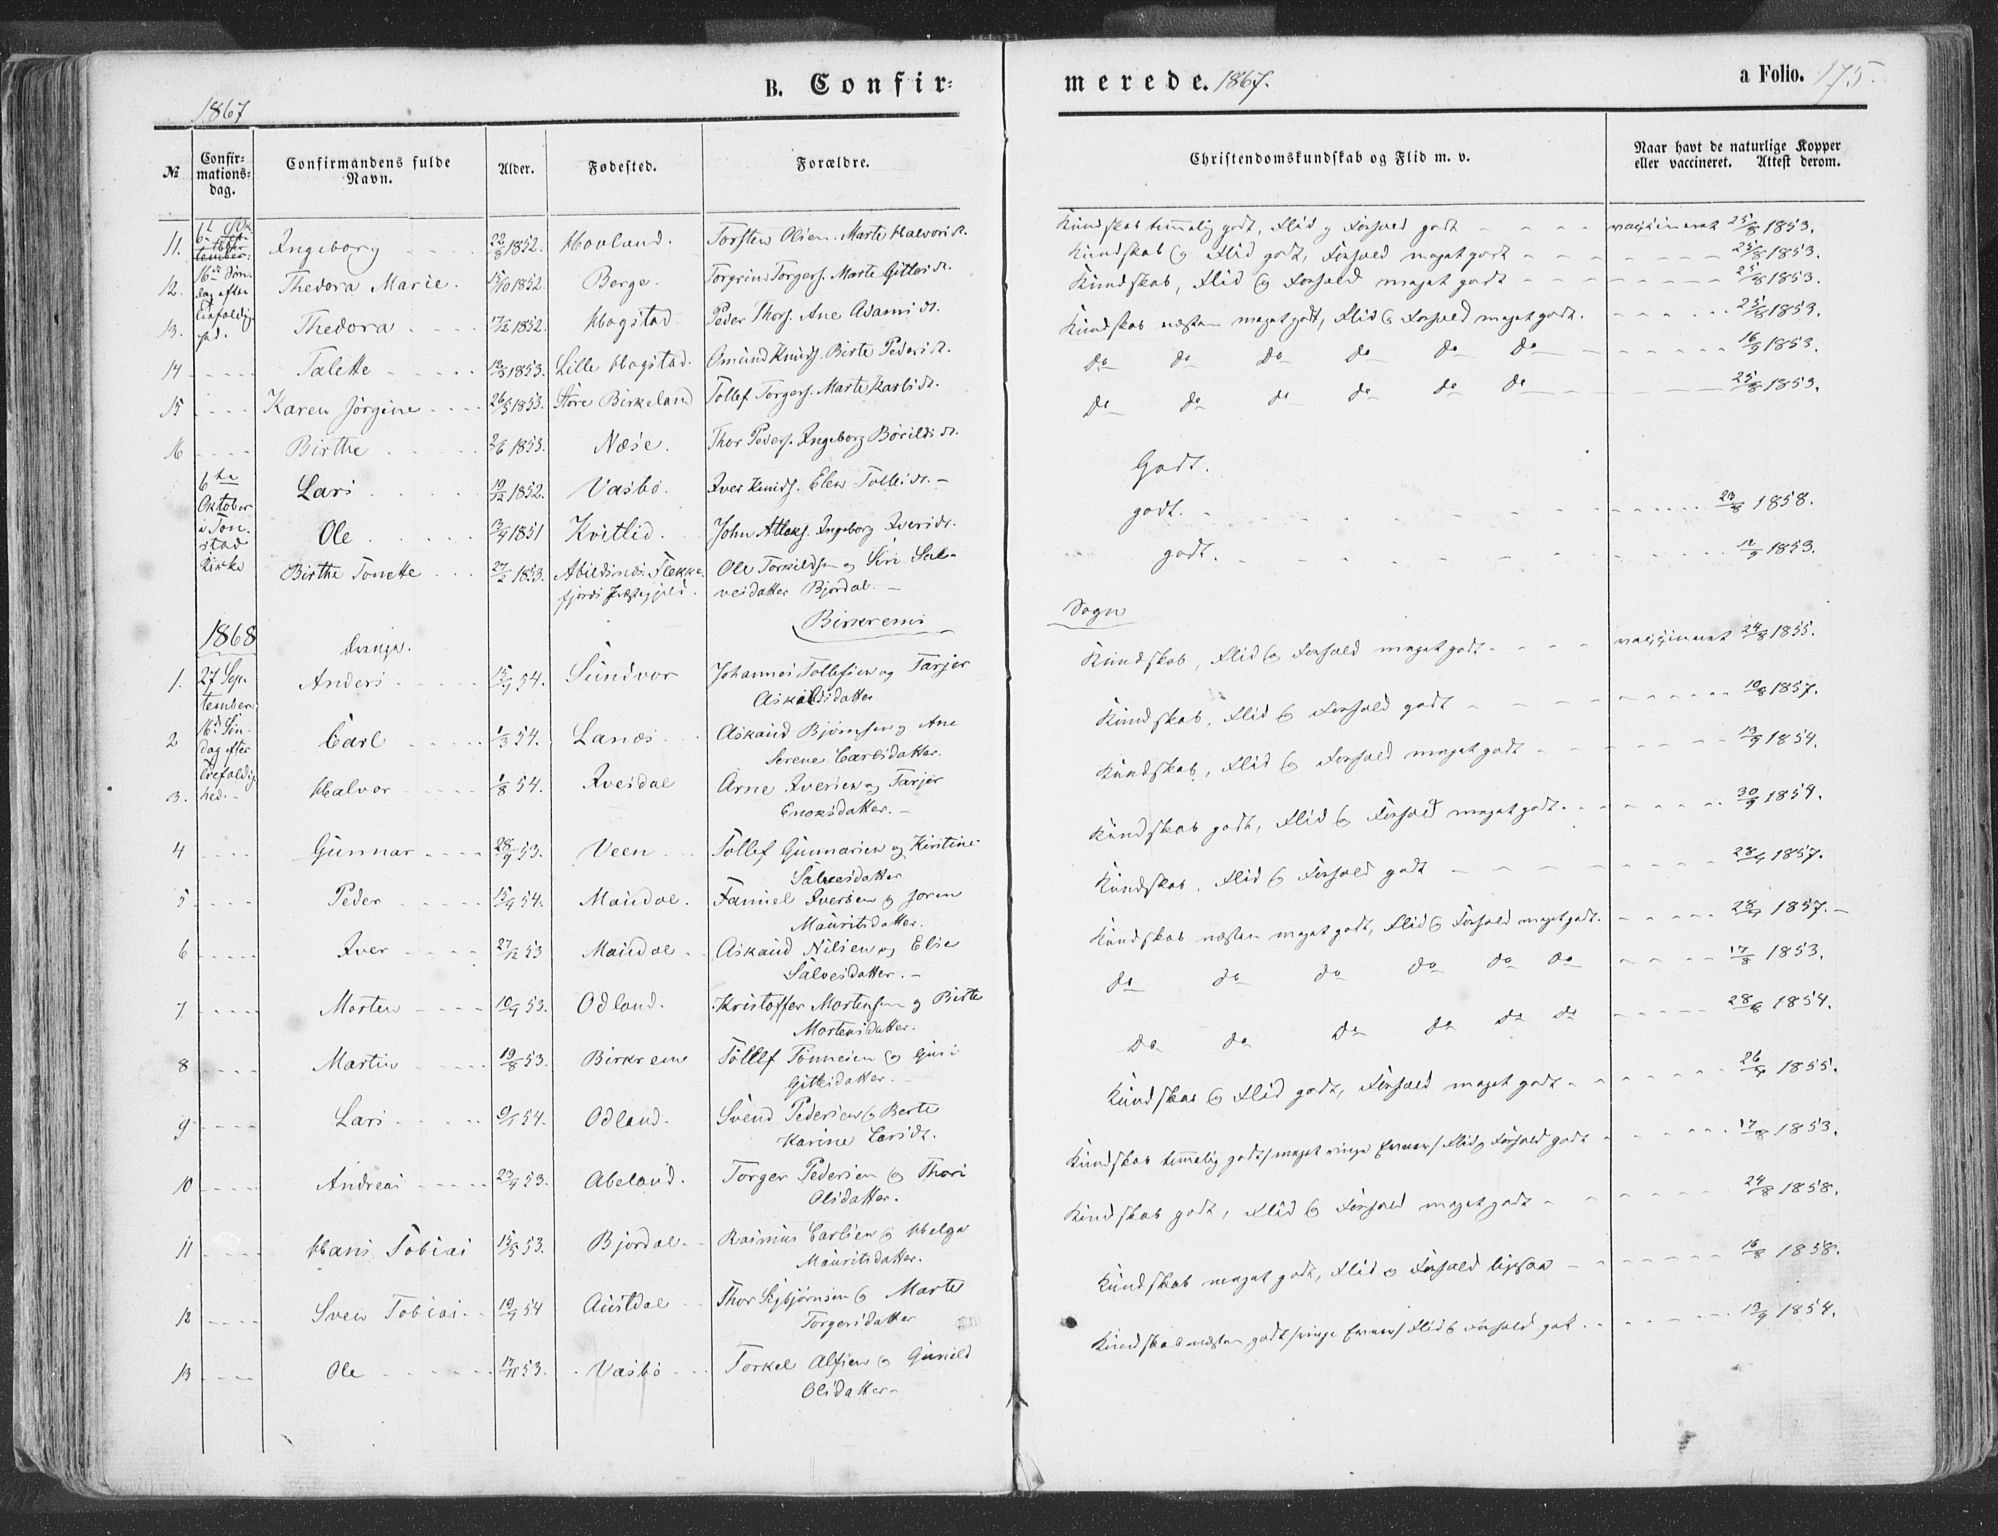 B. Confir=
merede. 1867.
a Folio. 175.
1867
№
Confir=
mations=
dag.
Confirmandens fulde
Navn.
Alder.
Fødested.
Forældre.
Christendomskundskab og Flid m. v.
Naar havt de naturlige Kopper
eller vaccineret. Attest derom.
11. Ingeborg 22/3 1852. Hovland. Torsten Olsen. Marte Halvorsd. Kundskab temmelig godt, Flid og Forhold godt vaccineret 25/8 1853.
16de Søn-
dag efter
12. Thedora Marie. 15/10 1852. Berge. Torgrim Torgers. Marte Gittesd. Kundskab og Flid godt, Forhold meget godt 25/8 1853.
13. Thedora 17/12 1852. Hogstad Peder Thors. Ane Adamsd. Kundskab, Flid og Forhold meget godt 25/8 1853.
14 Talette 12/3 1853. Lille Hogstad. Omund Knuds. Birte Pedersd. Kundskab næsten meget godt, Flid og Forhold meget godt. 25/8 1853.
15 Karen Jørgine 26/5 1853. Store Birkeland Tollef Torgers. Marte Karlsd. do do do do do do 16/9 1853.
16 Birthe 2/6 1853. Næse. Thor Peders. Ingeborg Børildsd. do do do do do do 25/8 1853.
6te
Oktober
i Ton-
stad
Kirke
Lars 19/12 1852. Vasbø. Iver Knuds. Elen Tollisd. Godt.
Ole 3/9 1851 Kvitlid. John Atlaks. Ingeborg Iversd. godt. 23/8 1858.
Birthe Tonette 27/2 1853. Abildsnæs Flekke- Ole Torkildsen og Siri Sal- godt. 12/9 1853.
fjords Præstegjeld. vesdatter Bjordal.
Birkrems Sogn
1868
Drenge.
1. 27 Sep- Anders 15/1 54. Sundvor Johannes Tollefsen og Tarjer Kundskab, Flid og Forhold meget godt vaccineret 24/8 1855.
tember. Askildsdatter
16d Søn-
2 dag efter Carl 1/3 54. Lanes Askaud Bjørnsen og Ane Kundskab, Flid og Forhold godt 10/8 1857.
Trefoldig- Serene Carlsdatter.
3. hed. Halvor 1/8 54. Ivesdal Arne Iversen og Tarjer Kundskab, Flid og Forhold meget godt 13/9 1854.
Enoksdatter.
4 Gunnar 28/9 53. Veen Tollef Gunnarsen og Kirstine Kundskab godt, Flid og Forhold meget godt. 30/9 1854.
Salvesdatter
5 Peder 15/9 54. Maudal. Samuel Iversen og Joren Kundskab, Flid og Forhold godt 28/9 1857.
Mauritsdatter.
6 Iver 27/12 53 Maudal Askaud Nilsen og Elise Kundskab næsten meget godt, Flid og Forhold meget godt. 28/9 1857.
Salvesdatter.
7 Morten 10/9 53. Odland. Kristoffer Mortensen og Birte do do do do do do 17/8 1853.
Mortensdatter.
8 Martin 19/8 53. Birkrem Tollef Tønnesen og Guri do do do do do do 28/8 1854.
Gittesdatter.
9 Lars 9/1 54. Odland. Svend Pedersen og Berte Kundskab og Flid godt, Forhold meget godt 26/9 1855.
Karine Larsdt.
10 Andreas 23/9 53. Abeland. Torger Pedersen og Thori Kundskab temmelig godt /meget ringe Evner/ Flid og Forhold godt 17/8 1853.
Olsdatter.
11 Hans Tobias 15/5 53. Bjordal Rasmus Carlsen og Helga Kundskab godt, Flid og Forhold meget godt 24/8 1858.
Mauritsdatter.
12 Sven Tobias 10/9 54 Austdal Thor Sigbjørnsen og Marte Kundskab meget godt, Flid og Forhold ligesaa 16/8 1858.
Torgersdatter
13 Ole 17/11 53. Vasbø Torkel Alfsen og Gunild Kundskab næsten godt /ringe Evner/ Flid og Forhold god. 13/9 1854.
Olsdatter